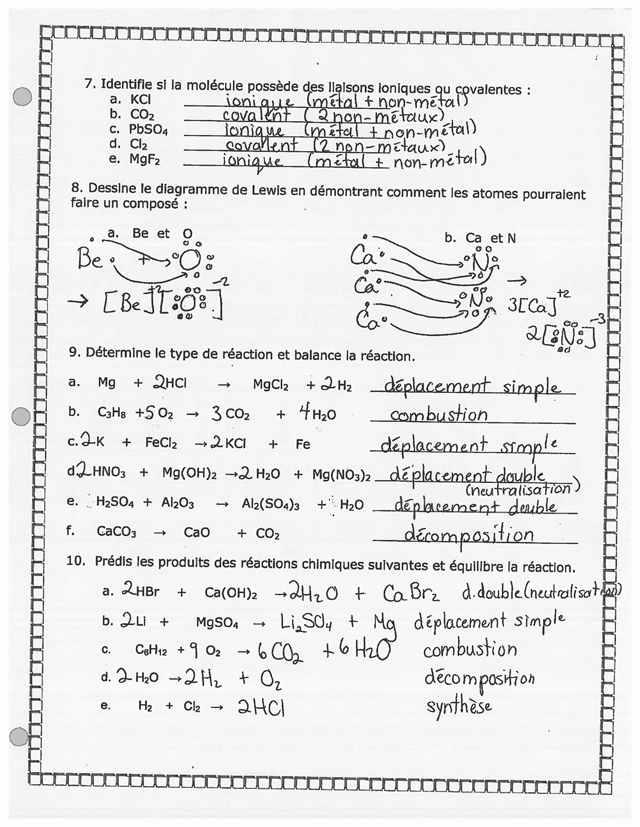 7. Identifie si la molécule possède des liaisons ioniques ou covalentes :
a. KCl ionique (métal + non-métal)
b. CO₂ covalent (2 non-métaux)
c. PbSO₄ ionique (métal + non-métal)
d. Cl₂ covalent (2 non-métaux)
e. MgF₂ ionique (métal + non-métal)
8. Dessine le diagramme de Lewis en démontrant comment les atomes pourraient
faire un composé :
a. Be et O
b. Ca et N
Be + O
→ [Be]⁺² [O]⁻²
Ca N
Ca →
Ca N 3[Ca]⁺²
2[N]⁻³
9. Détermine le type de réaction et balance la réaction.
a. Mg + 2HCl → MgCl₂ + 2H₂ déplacement simple
b. C₃H₈ + 5O₂ → 3CO₂ + 4H₂O combustion
c. 2K + FeCl₂ → 2KCl + Fe déplacement simple
d. 2HNO₃ + Mg(OH)₂ → 2H₂O + Mg(NO₃)₂ déplacement double
(neutralisation)
e. H₂SO₄ + Al₂O₃ → Al₂(SO₄)₃ + H₂O déplacement double
f. CaCO₃ → CaO + CO₂ décomposition
10. Prédis les produits des réactions chimiques suivantes et équilibre la réaction.
a. 2HBr + Ca(OH)₂ → 2H₂O + CaBr₂ d.double (neutralisation)
b. 2Li + MgSO₄ → Li₂SO₄ + Mg déplacement simple
c. C₆H₁₂ + 9O₂ → 6CO₂ + 6H₂O combustion
d. 2H₂O → 2H₂ + O₂ décomposition
e. H₂ + Cl₂ → 2HCl synthèse